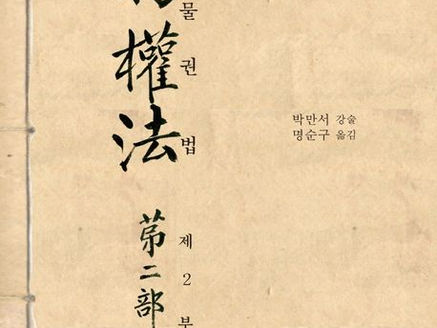 權法 第二部
물권법 제2부
박만서 강술
명순구 옮김